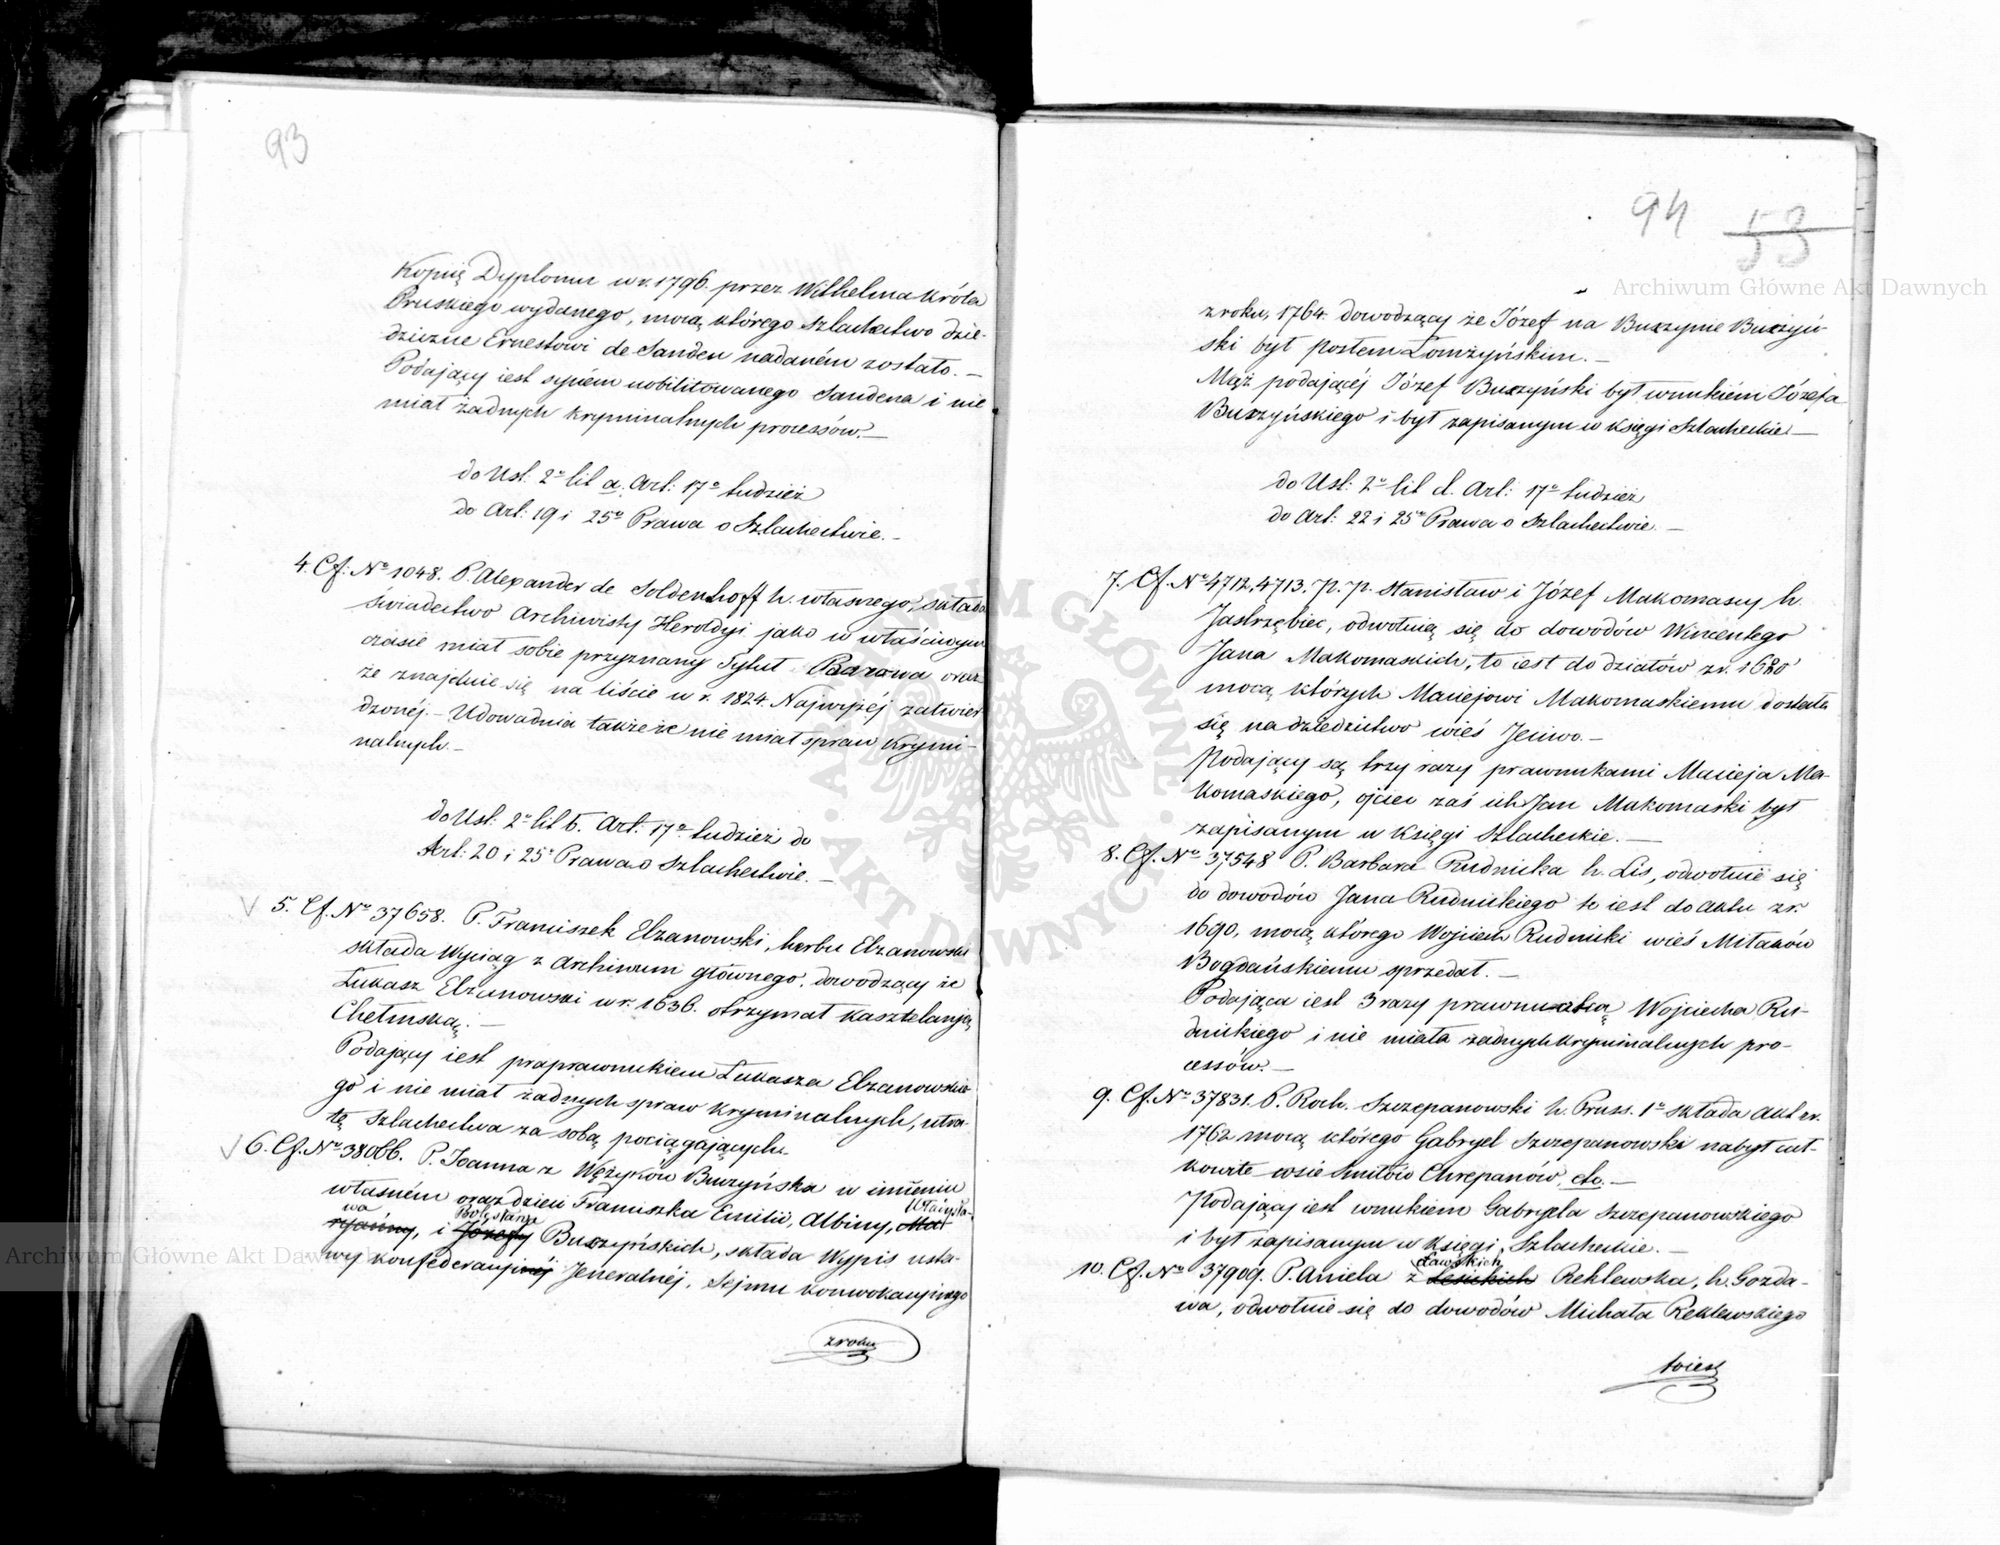 93
Kopiię Dyplomu w r. 1796. przez Wilhelma Króla
Pruskiego wydanego, mocą którego Szlachectwo dzie-
dziczne Ernestowi de Sanden nadaném zostało. —
Podający iest synem nobilitowanego Sandena i nie
miał żadnych kryminalnych processów. —
do Ust: 2° lit a. Art: 17° tudzież
do Art: 19 i 25° Prawa o Szlachectwie. —
4. Cf: No 1048. P. Alexander de Soldenhoff h. własnego, składa
świadectwo Archiwisty Heroldyi jako w właściwym
czasie miał sobie przyznany Tytuł Barona oraz
że znajduie się na liście w r. 1824. Najwyżéj zatwier
dzonéj. — Udowadnia także że nie miał spraw krymi-
nalnych. —
do Ust: 2° lit b. Art: 17° tudzież do
Art: 20 i 25° Prawa o Szlachectwie. —
5. Cf. No 37658. P. Franciszek Elzanowski, herbu Elzanowski
składa Wyciąg z Archiwum głównego, dowodzący że
Łukasz Elzanowski w r. 1636. otrzymał Kasztelaniją
Chełmską. —
Podający iest praprawnukiem Łukasza Elzanowskie-
go i nie miał żadnych spraw kryminalnych, utra-
tę Szlachectwa za sobą pociągających.
6. Cf. No 38066. P. Joanna z Wężyków Buczyńska w imieniu
własném oraz dzieci Franciszka Emilii, Albiny, Mar Władysła-
wa ryanny, i Józefy Bolesława Buczyńskich, składa Wypis usta-
wy konfederacyjnéj Jeneralnéj, Sejmu konwokacyjnego
z roku
94 53
z roku, 1764. dowodzący że Józef na Buczynie Buczyń-
ski był Posłem Łomżyńskim. —
Mąż podającéj Józef Buczyński był wnukiém Józefa
Buczyńskiego i był zapisanym w księgi Szlacheckie —
do Ust: 2° lit d. Art: 17° tudzież
do Art: 22 i 25° Prawa o Szlachectwie. —
7. Cf. No 4712, 4713. P. P. Stanisław i Józef Makomascy h.
Jastrzębiec, odwołuią się do dowodów Wincentego
Jana Makomaskich, to iest do działów z r. 1680
mocą których Maciejowi Makomaskiemu dostała
się na dziedzictwo wieś Jeciwo. —
Podający są trzy razy prawnukami Macieja Ma-
komaskiego, ojciec zaś ich Jan Makomaski był
zapisanym w Księgi Szlacheckie. —
8. Cf. No 37548 P. Barbara Rudnicka h. Lis, odwołuie się
do dowodów Jana Rudnickiego to iest do aktu z r.
1690, mocą którego Wojciech Rudnicki wieś Miłaków
Bogdańskiemu sprzedał. —
Podająca iest 3 razy prawnuczką Wojciecha Ru-
dnickiego i nie miała żadnych kryminalnych pro-
cessów. —
9. Cf. No 37831. P. Roch. Szczepanowski h. Pruss. 1° składa akt z r.
1762 mocą którego Gabryel Szczepanowski nabył cał-
kowite wsie Chrepanów, etc. —
Podający iest wnukiem Gabryela Szczepanowskiego
i był zapisanym w Księgi Szlacheckie. —
10. Cf. No 37909. P. Aniela z Ławskich Rekłewska, h. Gozda-
wa, odwołuie się do dowodów Michała Rekłewskiego
to iest
Archiwum Główne Akt Dawnych
Archiwum Główne Akt Dawnych
ARCHIWUM GŁÓWNE · AKT DAWNYCH ·